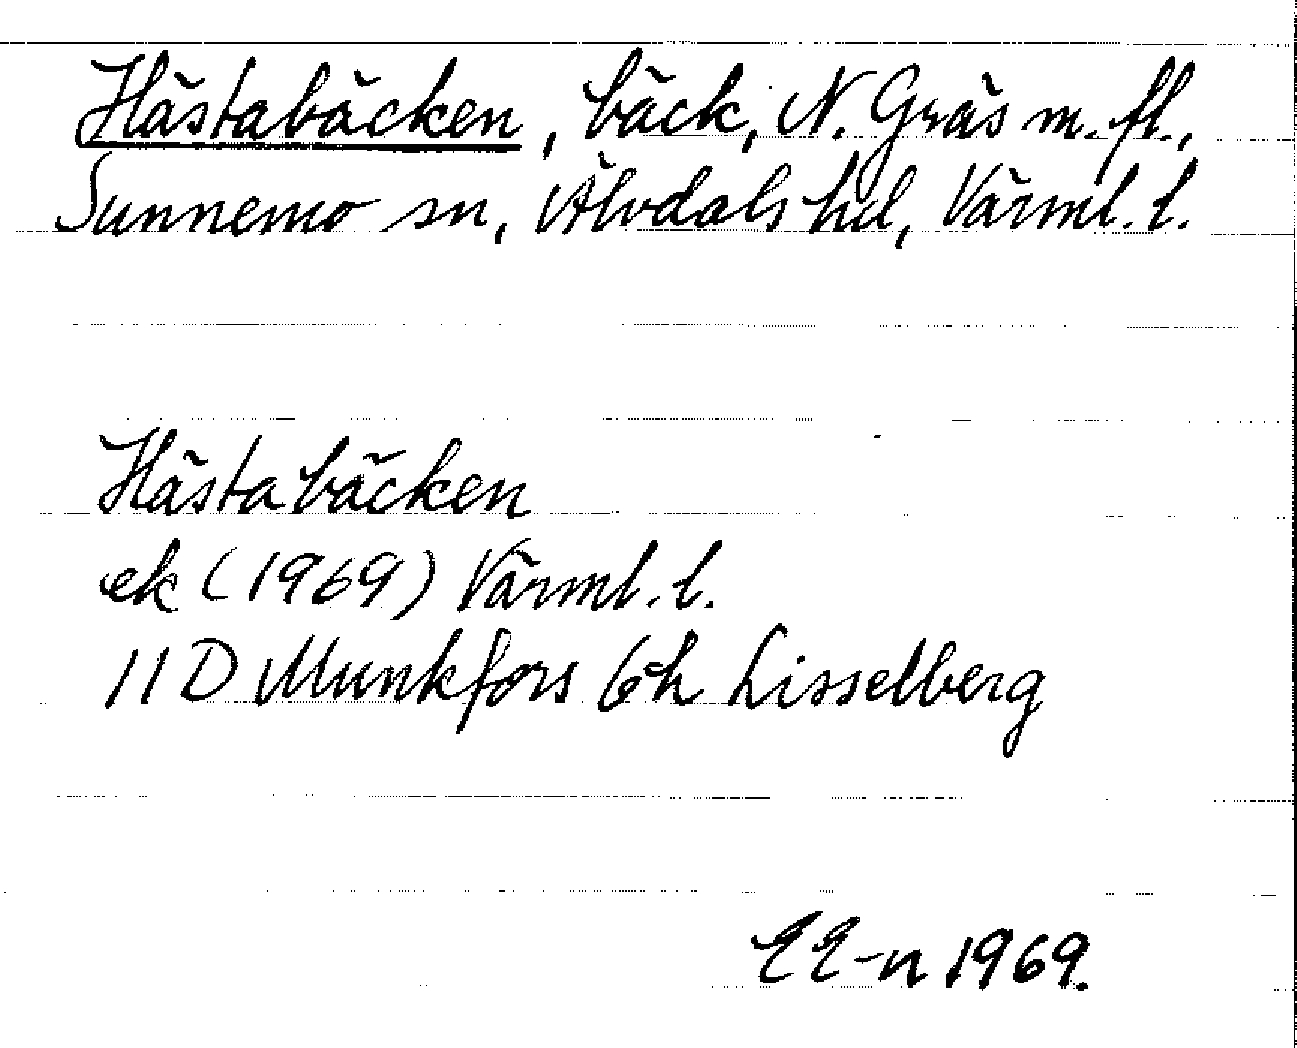 Hästabäcken, bäck, N. Gräs m. fl.,
Sunnemo sn, Älvdals hd, Värml. l.
Hästabäcken
ek (1969) Värml. l.
11 D Munkfors 6h Lisselberg
EE-n 1969.